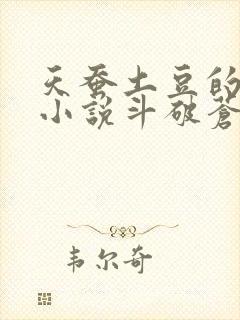 天蚕土豆的
小說斗破蒼
韦尔奇